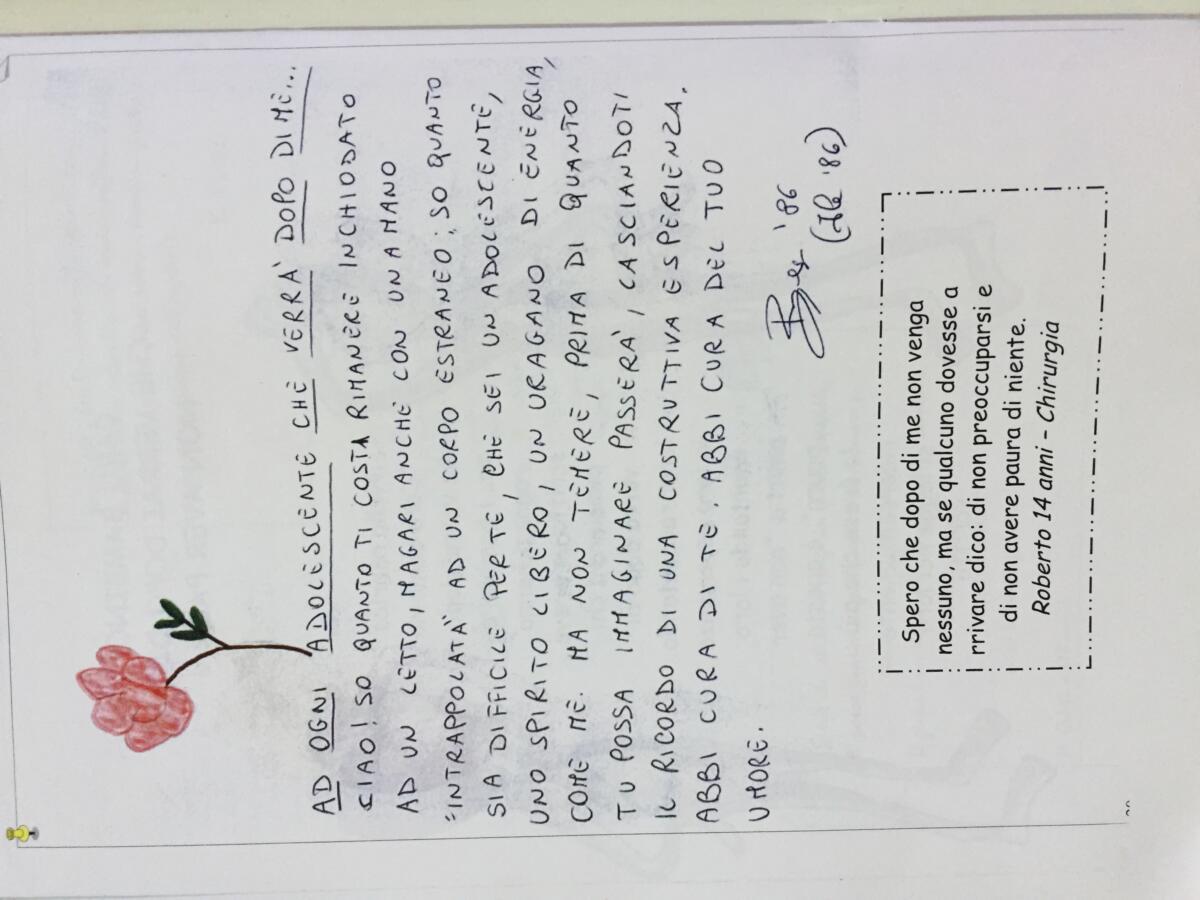 AD OGNI ADOLESCENTE CHE VERRA' DOPO DI ME...
CIAO! SO QUANTO TI COSTA RIMANERE INCHIODATO
AD UN LETTO, MAGARI ANCHE CON UNA MANO
"INTRAPPOLATA" AD UN CORPO ESTRANEO; SO QUANTO
SIA DIFFICILE PER TE, CHE SEI UN ADOLESCENTE,
UNO SPIRITO LIBERO, UN URAGANO DI ENERGIA,
COME ME. MA NON TEMERE, PRIMA DI QUANTO
TU POSSA IMMAGINARE PASSERA', LASCIANDOTI
IL RICORDO DI UNA COSTRUTTIVA ESPERIENZA.
ABBI CURA DI TE. ABBI CURA DEL TUO
UMORE.
'86
'86)
Spero che dopo di me non venga
nessuno, ma se qualcuno dovesse a
rrivare dico: di non preoccuparsi e
di non avere paura di niente.
Roberto 14 anni - Chirurgia